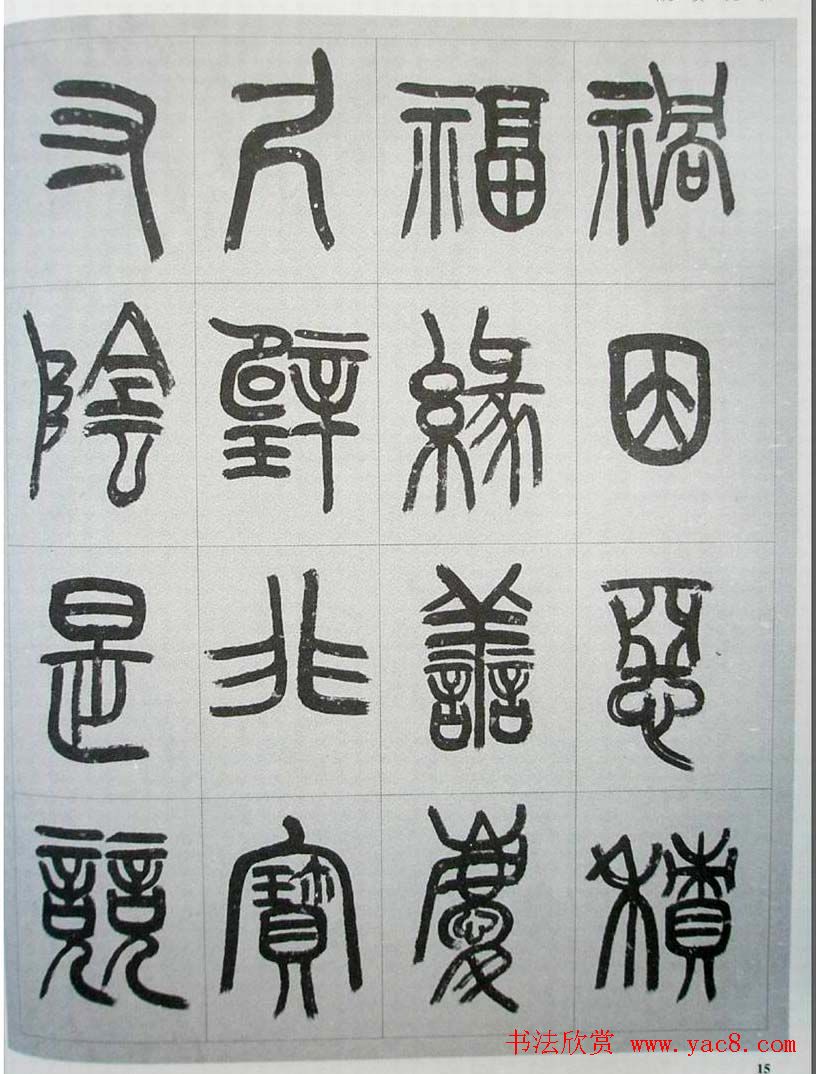 禍因惡積
福緣善慶
尺璧非寶
寸陰是競
书法欣赏 www.yac8.com
15